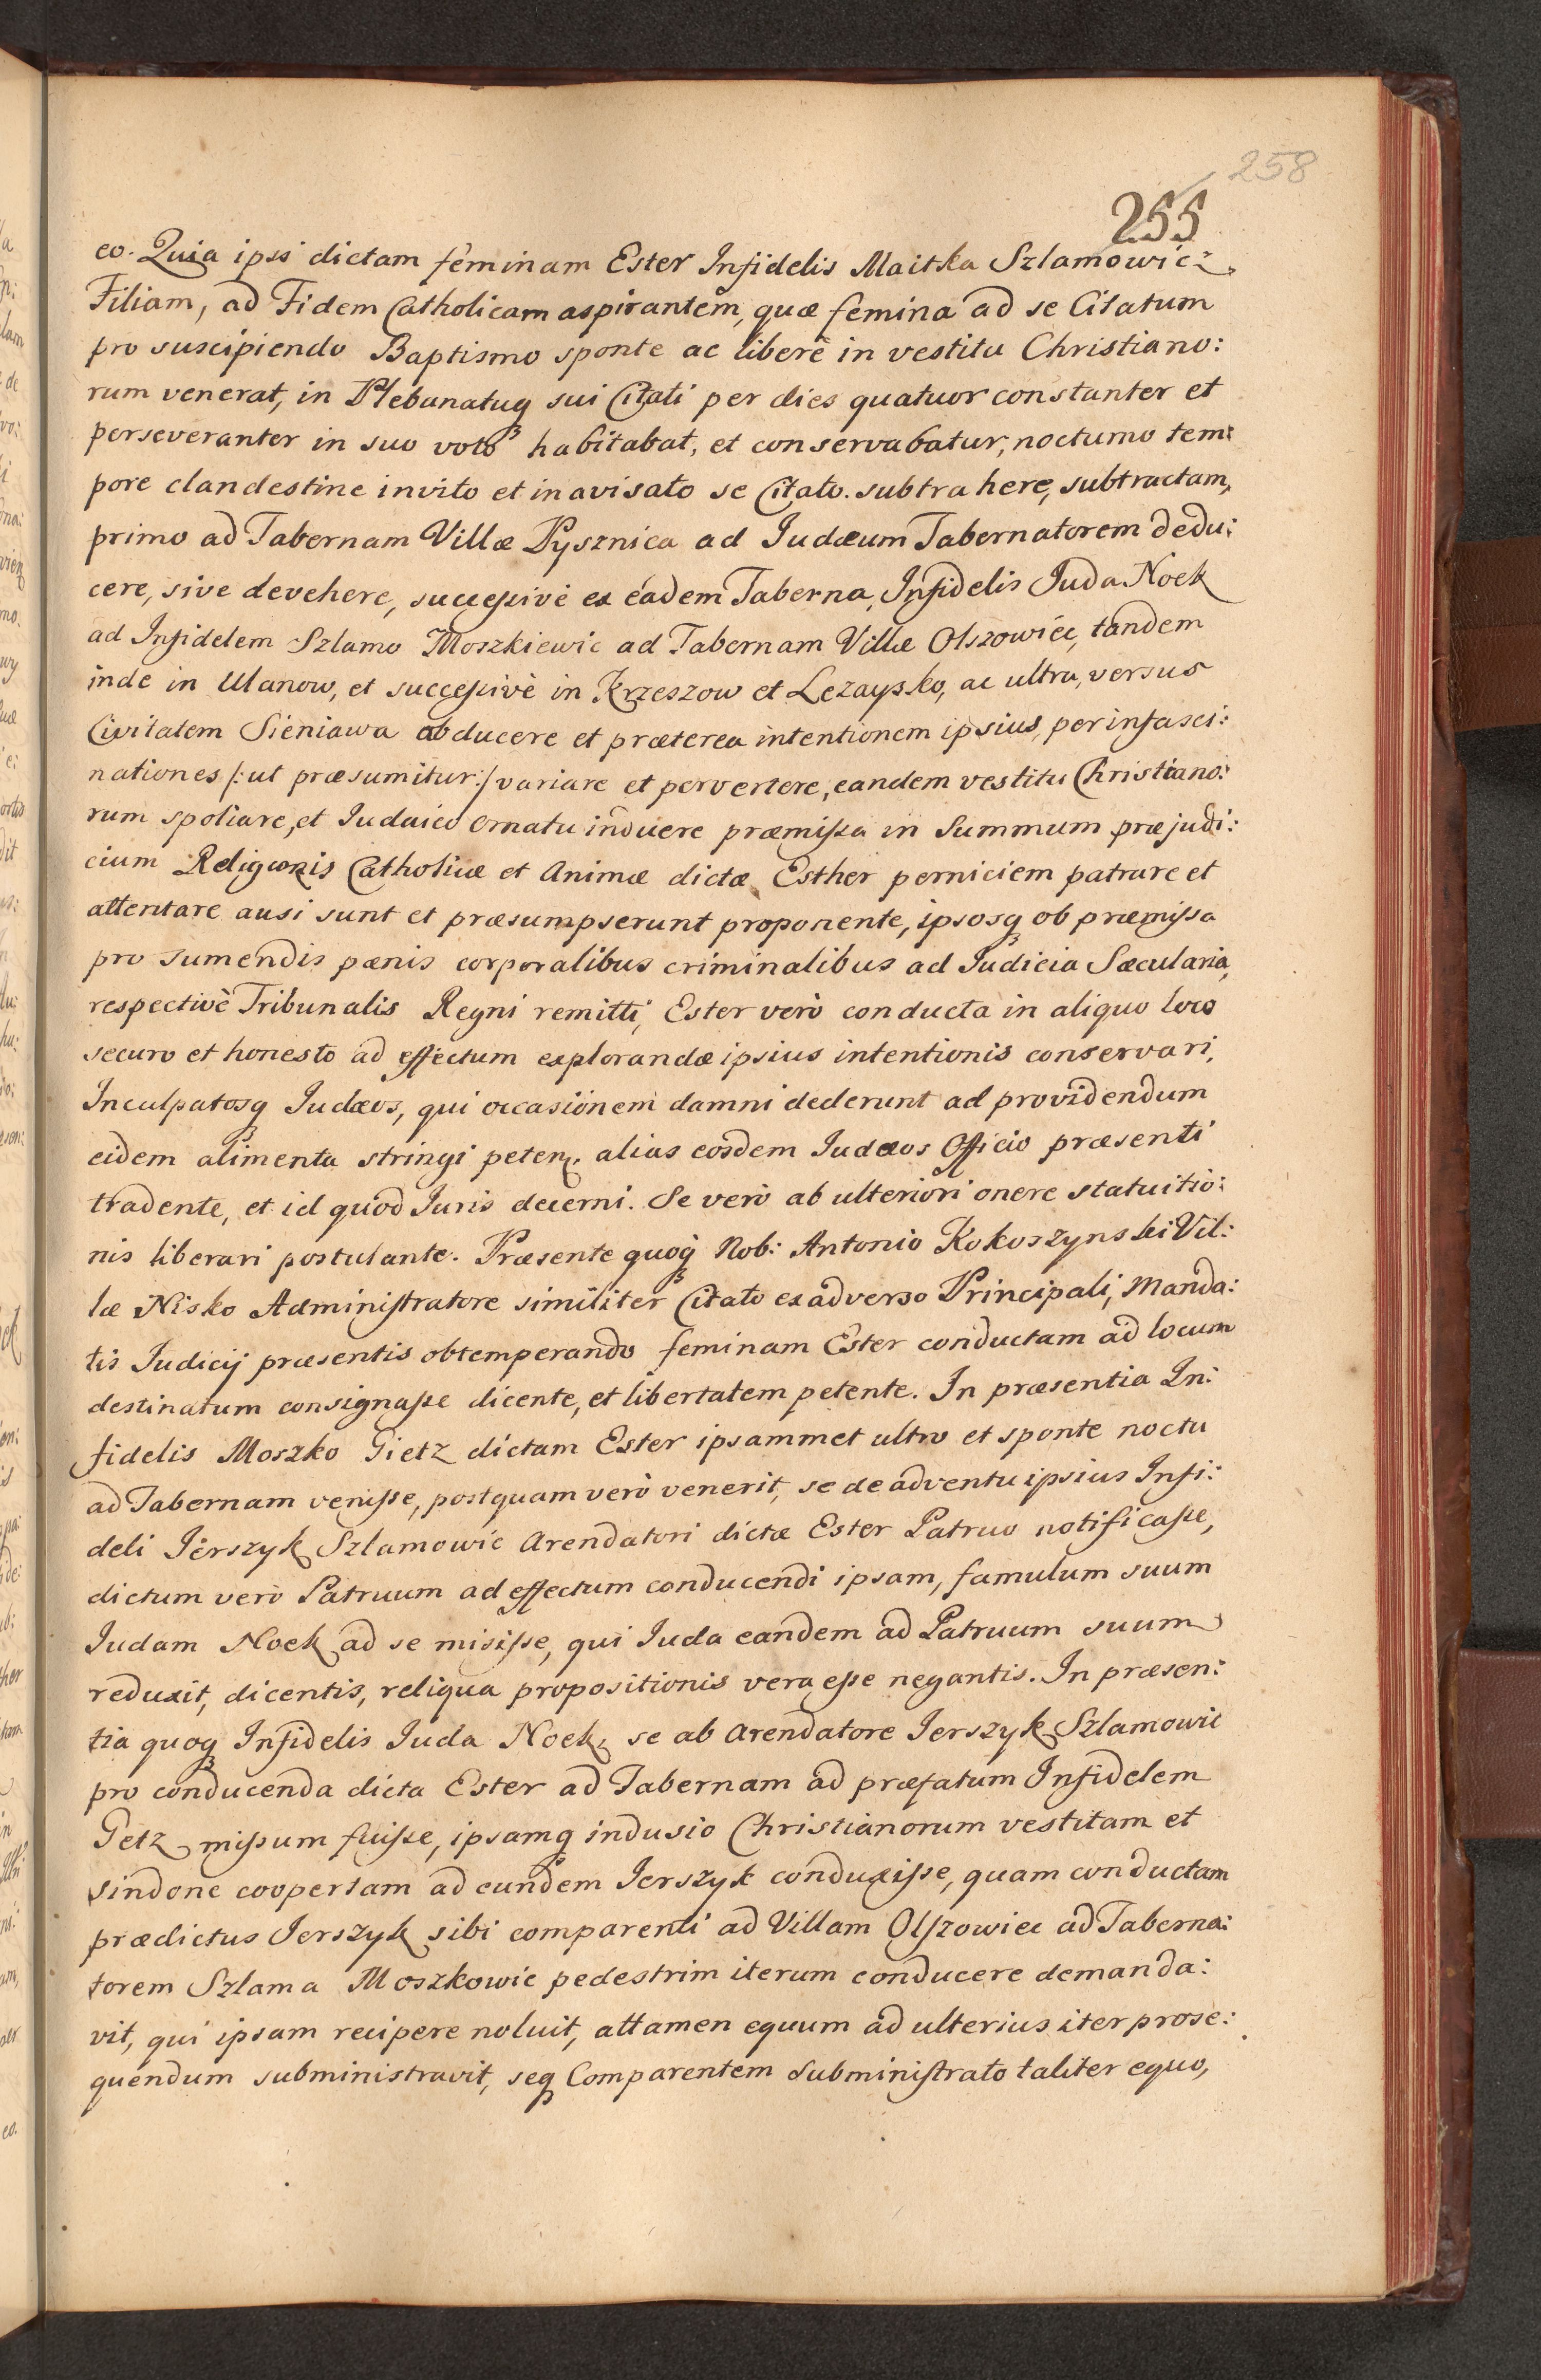 258
255
eo. Quia ipsi dictam feminam Ester Infidelis Maitka Szlamowicz,
Filiam, ad Fidem Catholicam aspirantem, quæ femina ad se Citatum
pro suscipiendo Baptismo sponte ac liberè in vestitu Christiano:
rum venerat, in Plebanatuq sui Citati per dies quatuor constanter et
perseveranter in suo voto habitabat, et conservabatur, nocturno tem:
pore clandestine invito et inavisato se Citato. subtrahere, subtractam,
primo ad Tabernam Villæ Pysznica ad Judæum Tabernatorem dedu:
cere, sive devehere, successivè ex eadem Taberna, Infidelis Juda Noek
ad Infidelem Szlamo Moszkiewic ad Tabernam Villæ Olszowiec, tandem
inde in Ulanow, et successivè in Krzeszow et Lezaysko, ac ultra, versus
Civitatem Sieniawa abducere et præterea intentionem ipsius, per infasci:
nationes /: ut præsumitur :/ variare et pervertere, eandem vestitu Christiano:
rum spoliare, et Iudaico ornatu induere præmissa in Summum præjudi:
cium Religionis Catholicæ et Animæ dictæ Esther perniciem patrare et
attentare ausi sunt et præsumpserunt proponente, ipsosq ob præmissa
pro sumendis pænis corporalibus criminalibus ad Iudicia Sæcularia,
respectivè Tribunalis Regni remitti, Ester verò conducta in aliquo loco
securo et honesto ad effectum explorandæ ipsius intentionis conservari,
Inculpatosq Iudæos, qui occasionem damni dederunt ad providendum
eidem alimenta stringi peten. alias eosdem Iudæos Officio præsenti
tradente, et id quod Iuris decerni. Se verò ab ulteriori onere statuitio:
nis liberari postulante. Præsente quoq Nob: Antonio Kokoszynski Vil:
læ Nisko Administratore similiter Citato ex adverso Principali, Manda:
tis Iudicij præsentis obtemperando feminam Ester conductam ad locum
destinatum consignasse dicente, et libertatem petente. In præsentia In:
fidelis Moszko Gietz dictam Ester ipsammet ultro et sponte noctu
ad Tabernam venisse, postquam verò venerit, se de adventu ipsius Infi:
deli Jerszyk Szlamowic Arendatori dictæ Ester Patruo notificasse,
dictum verò Patruum ad effectum conducendi ipsam, famulum suum
Iudam Noek ad se misisse, qui Iuda eandem ad Patruum suum
reduxit, dicentis, reliqua propositionis vera esse negantis. In præsen:
tia quoq Infidelis Iuda Noek, se ab Arendatore Jerszyk Szlamowic
pro conducenda dicta Ester ad Tabernam ad præfatum Infidelem
Getz missum fuisse, ipsamq indusio Christianorum vestitam et
sindone coopertam ad eundem Jerszyk conduxisse, quam conductam
prædictus Jerszyk sibi comparenti ad Villam Olszowiec ad Taberna:
torem Szlama Moszkowic pedestrim iterum conducere demanda:
vit, qui ipsam recipere noluit, attamen equum ad ulterius iter prose:
quendum subministravit, seq Comparentem Subministrato taliter equo,